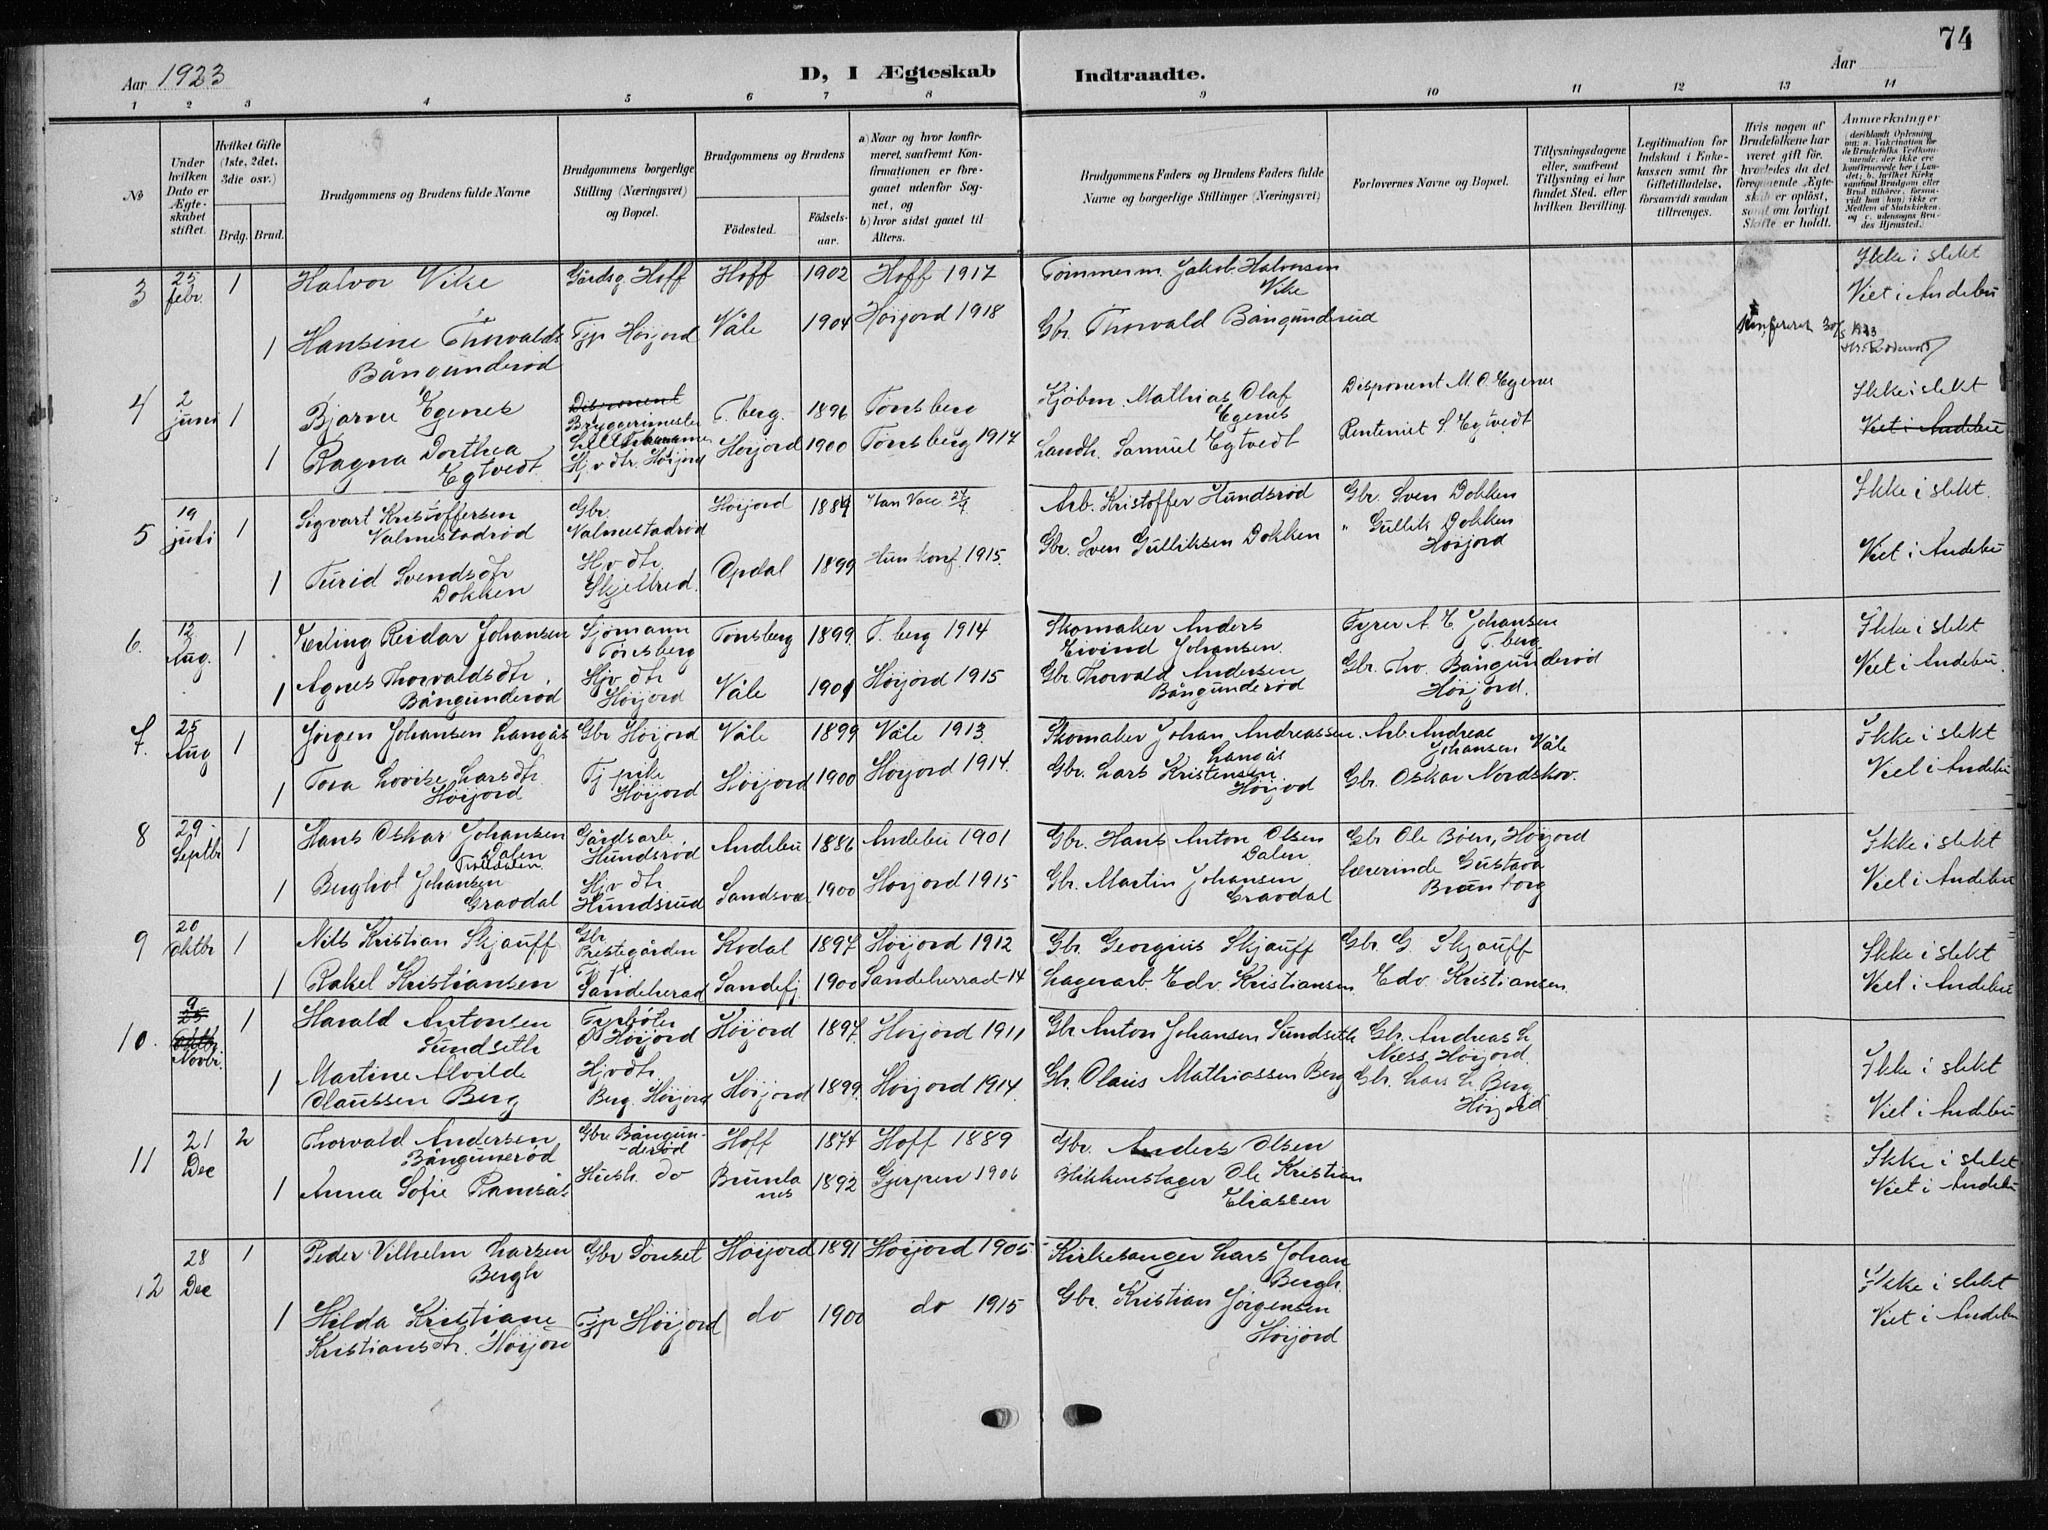 74
Aar 1923
D, I Ægteskab
Indtraadte.
Aar
1 2 3 4 5 6 7 8 9 10 11 12 13 14
No
Under hvilken Dato er Ægteskabet stiftet.
Hvilket Gifte (1ste, 2det, 3die osv.)
Brdg. Brud.
Brudgommens og Brudens fulde Navne
Brudgommens borgerlige Stilling (Næringsvei) og Bopæl.
Brudgommens og Brudens
Födested. Födselsaar.
a) Naar og hvor konfirmeret, saafremt Konfirmationen er foregaaet udenfor Sognet, og
b) hvor sidst gaaet til Alters.
Brudgommens Faders og Brudens Faders fulde Navne og borgerlige Stillinger (Næringsvei)
Forlovernes Navne og Bopæl.
Tillysningsdagene eller, saafremt Tillysning ei har fundet Sted, efter hvilken Bevilling.
Legitimation for Indskud i Enkekassen samt for Giftetilladelse, forsaavidt saadan tiltrænges.
Hvis nogen af Brudefolkene har været gift før, hvorledes da det foregaaende Ægteskab er oplöst, samt om lovligt Skifte er holdt.
Anmerkninger
3 25 febr. 1 Halvor Vike Gårdsg. Hoff Hoff 1902 Hoff 1917 Tömmerm. Jakob Halvorsen Vike Ikke i slekt
1 Hansine Thorvalds Bångunderöd Tjp Höijord Våle 1904 Höijord 1918 Gbr. Thorvald Bångunderud Viet i Andebu
4 2 juni 1 Bjarne Egenes Disponent Bryggerimester T.berg. 1896 Tönsberg Kjöbm. Mathias Olaf Egenes Disponent M. O. Egenes Ikke i slekt
1 Ragna Dorthea Egtvedt Hjv dtr. Höijord Höijord 1900 Tönsberg 1914 Landh. Samuel Egtvedt Rentenist S. Egtvedt Viet i Andebu
5 19 juli 1 Sigvart Kristoffersen Valmestadröd Gbr. Valmestadröd Höijord 1889 Arb. Kristoffer Hundsröd Gbr. Sven Dokken Ikke i slekt.
1 Turid Svendsdtr Dokken Hjv dtr. Skjelbred. Opdal 1899 Hun konf. 1915. Gbr. Sven Gulliksen Dokken " Gullik Dokken Höijord Viet i Andebu
6. 12 Aug. 1 Erling Reidar Johansen Sjömann Tönsberg Tönsberg 1899. T. berg 1914 Skomaker Anders Eivind Johansen. Fyrer A. E. Johansen T. berg Ikke i slekt
1 Agnes Thorvaldsdtr. Bångunderöd Hjv dtr Höijord Våle 1901 Höijord 1915 Gbr Thorvald Andersen Bångunderöd Gbr. Thv. Bångunderöd Höijord. Viet i Andebu.
7. 25 Aug 1 Jörgen Johansen Langås Gbr Höijord Våle 1899 Våle 1913. Skomaker Johan Andreassen Langås Arb. Andreas Johansen Våle Ikke i slekt
1 Tora Lovise Larsdtr Höijord Tj pike Höijord Höijord 1900 Höijord 1914. Gbr. Lars Kristensen Höijord Gbr. Oskar Nordskov. Viet i Andebu
8 29 Septbr 1 Hans Oskar Johansen Dalen Gårdsarb. Hundsröd Andebu 1886 Andebu 1901 Gbr. Hans Anton Olsen Dalen Gbr Ole Böen, Höijord Ikke i slekt
1 Bergliot Johansen Gravdal Hjv dtr Hundsrud Sandsvær 1900 Höijord 1915 Gbr. Martin Johansen Gravdal Lærerinde Gustava Brunborg Viet i Andebu
9 20 Oktbr 1 Nils Kristian Skjauff Gbr Prestegården Kodal 1897 Höijord 1912 Gbr. Georgius Skjauff Gbr G. Skjauff Ikke i slekt
1 Rakel Kristiansen Tjp Sandeherad Sandefj. 1900 Sandeherrad-14 Lagerarb. Edv. Kristiansen. Edv. Kristiansen. Viet i Andebu
10. 9 25 Oktbr Novbr. 1 Harald Antonsen Sundseth Höijord Höijord 1897. Höijord 1911 Gbr Anton Johansen Sundseth Gbr. Andreas L Næss, Höijord. Ikke i slekt
1 Martine Alvilde Olaussen Berg Hjvdtr. Berg. Höijord Höijord 1899. Höijord 1914. Gbr. Olaus Mathiassen Berg Gbr. Lars L. Berg Höijord Viet i Andebu
11 21 Dec 2 Thorvald Andersen Bångunderöd Gbr Bångunderöd Hoff 1874 Hoff 1889 Gbr. Anders Olsen Ikke i slekt
1 Anna Sofie Ramsås Hush. do Brunlanes 1892 Gjerpen 1906 Blikkenslager Ole Kristian Eliassen Viet i Andebu
12 28 Dec 1 Peder Vilhelm Larsen Bergh Gbr Sönset Höijord 1891 Höijord 1905 Kirkesanger Lars Johan Bergh. Ikke i slekt
1 Hilda Kristiane Kristiansdtr. Höijord Tjp Höijord do 1900 do 1915 Gbr. Kristian Jörgensen Höijord Viet i Andebu